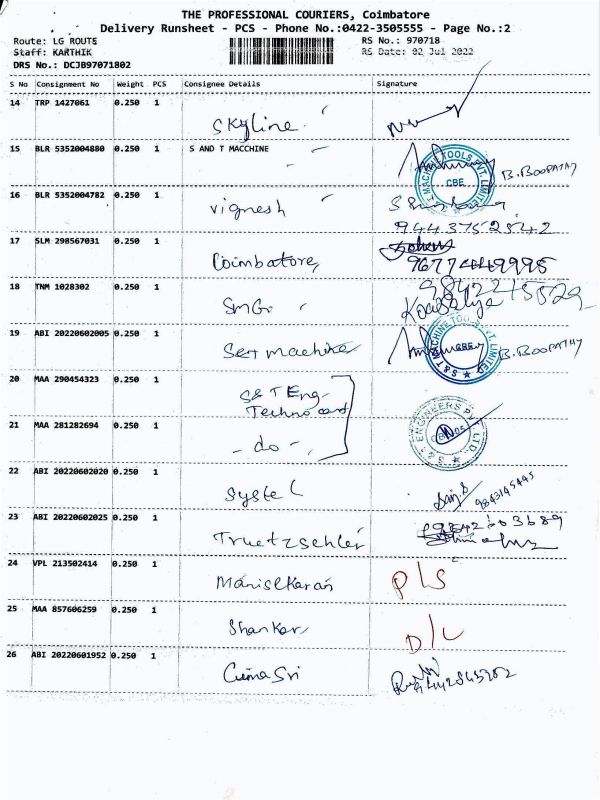 THE PROFESSIONAL COURIERS, Coimbatore
Delivery Runsheet - PCS - Phone No.:0422-3505555 - Page No.:2
Route: LG ROUTE
RS No.: 970718
Staff: KARTHIK
RS Date: 02 Jul 2022
DRS No.: DCJB97071802
S No Consignment No Weight PCS Consignee Details Signature
14 TRP 1427061 0.250 1 Skyline
15 BLR 5352004880 0.250 1 S AND T MACCHINE
B. BOOPATHY
16 BLR 5352004782 0.250 1 Vignesh
9443752542
17 SLM 298567031 0.250 1 Coimbatore,
18 TNM 1028302 0.250 1
Kowsalya
19 ABI 20220602005 0.250 1 S&T machine
B. BOOPATHY
20 MAA 290454323 0.250 1 S&T Eng-
21 MAA 281282694 0.250 1 - do -,
22 ABI 20220602020 0.250 1
9843145445
23 ABI 20220602025 0.250 1 Truetzschler
9842603689
24 VPL 213502414 0.250 1 Manisekaran
25 MAA 857606259 0.250 1 Shankar
D/L
26 ABI 20220601952 0.250 1 CumaSri